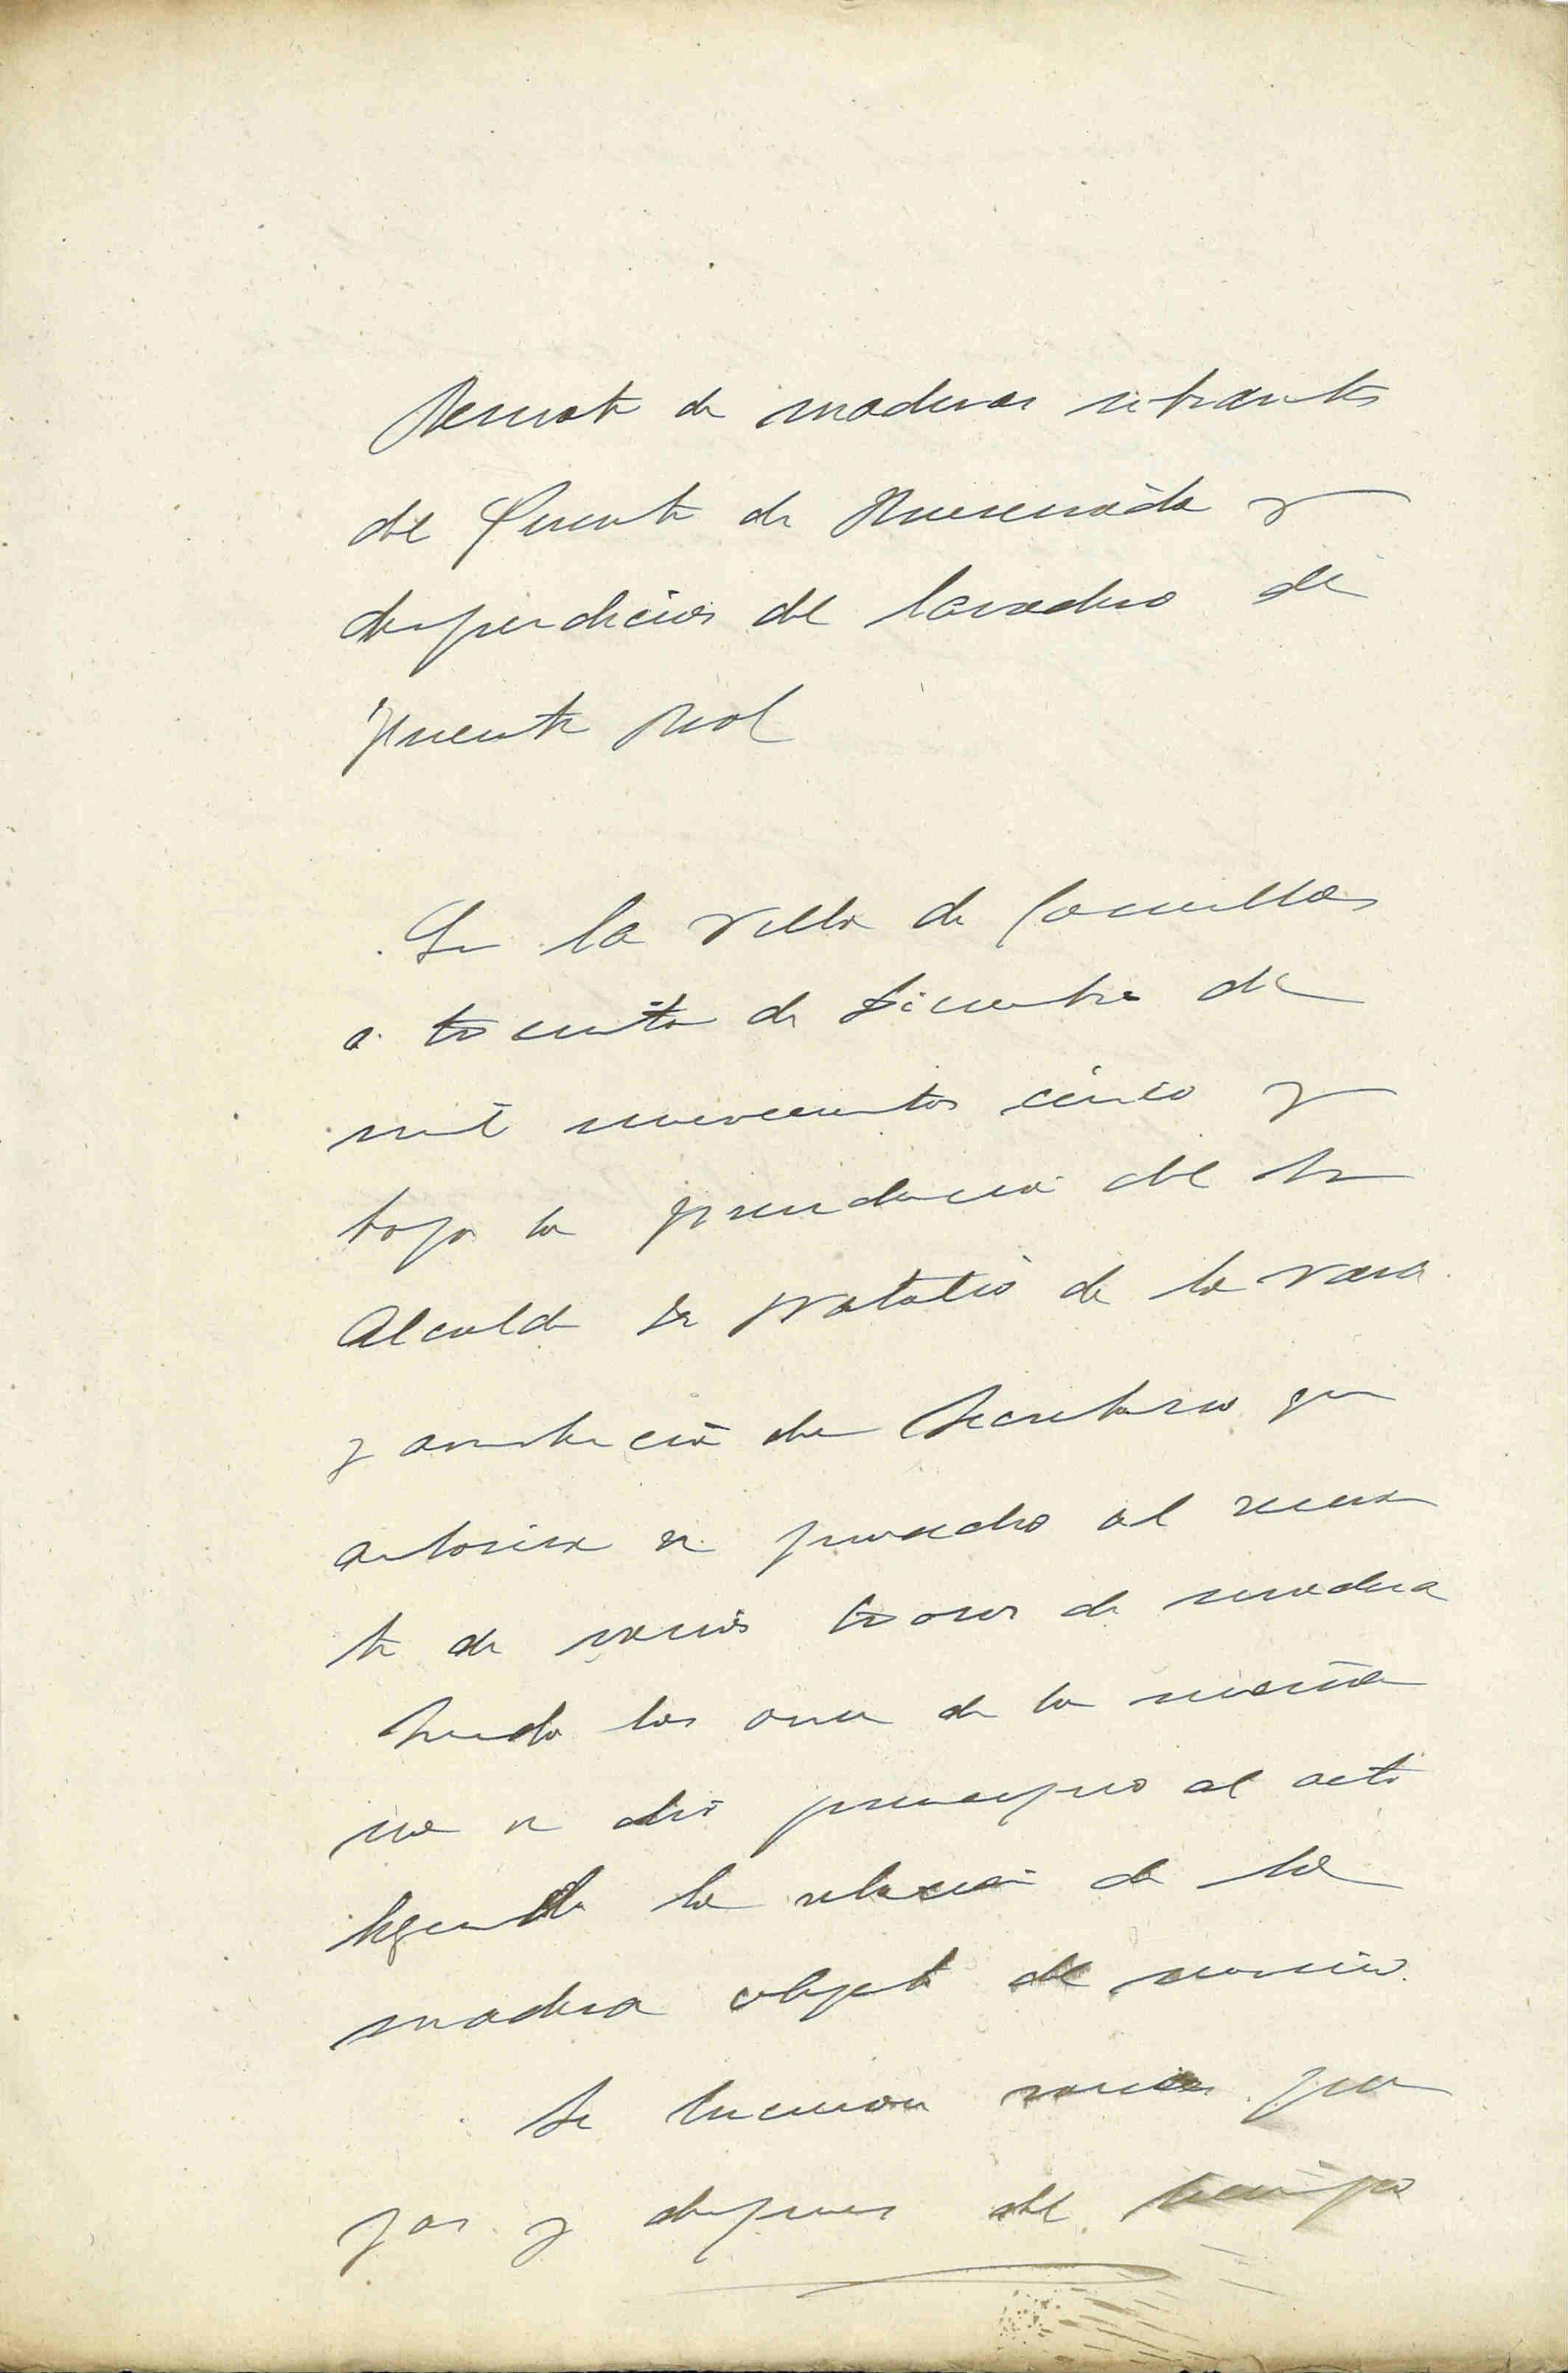 Remate de maderas sobrantes
del Puente de Rumenada y
desperdicios del lavadero de
Fuente Real
En la villa de Comillas
a treinta de Diciembre de
mil novecientos cinco y
bajo la presidencia del Sr
Alcalde Dn Natalio de la Vara
y asistencia de Secretario que
autoriza se procedio al rema
te de varios trozos de madera
Siendo las once de la maña
na se dio principio al acto
leyendo la relacion de la
madera objeto del mismo.
Se hicieron varias pu
jas y despues del tiempo